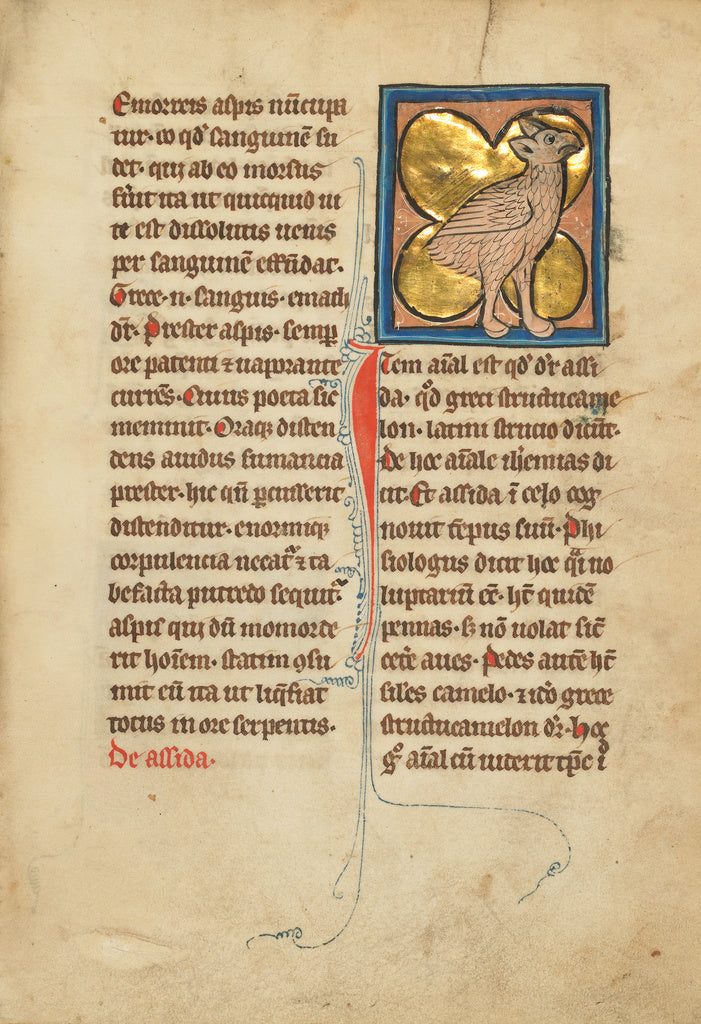 Emorrois aspis nūcupa
tur· eo qď sanguinē su
det· qui ab eo morsus
fũit ita ut quicquid ui
te est dissolutis uenis
per sanguinē effūdat·
Grece·n·sanguis·emath
dr̄· Prester aspis·semp̱
ore patenti ⁊ uaporante
currēs· Cuius poeta sic
meminit· Oraqꝫ disten
dens auidus fumancia
prester·hic qñ ꝑcusserit
distenditur·enormiqꝫ
corpulencia necat᷑ ⁊ ta
befacta putredo sequit᷑·
aspis qui dū momorde
rit hoīem·statim ꝯsu
mit eū ita ut liq̄fiat
totus in ore serpentis·
De assida·
Item aīal est qď dr̄ assi
da· qď greci structicame
lon·latini strucio dicūt·
De hoc aīale iheremias di
cit· Et assida ī celo cog
nouit tēpus suū· Phi
siologus dicit hoc q̄i uo
luptariū eē·hꝫ quidē
pennas·sꝫ nō uolat sic̄
cet̄e aues· Pedes autē hꝫ
sil̄es camelo·⁊ ic̊o grece
structicamelon dr̄· hoc
gͦ aīal cū uiderit tp̄c ī